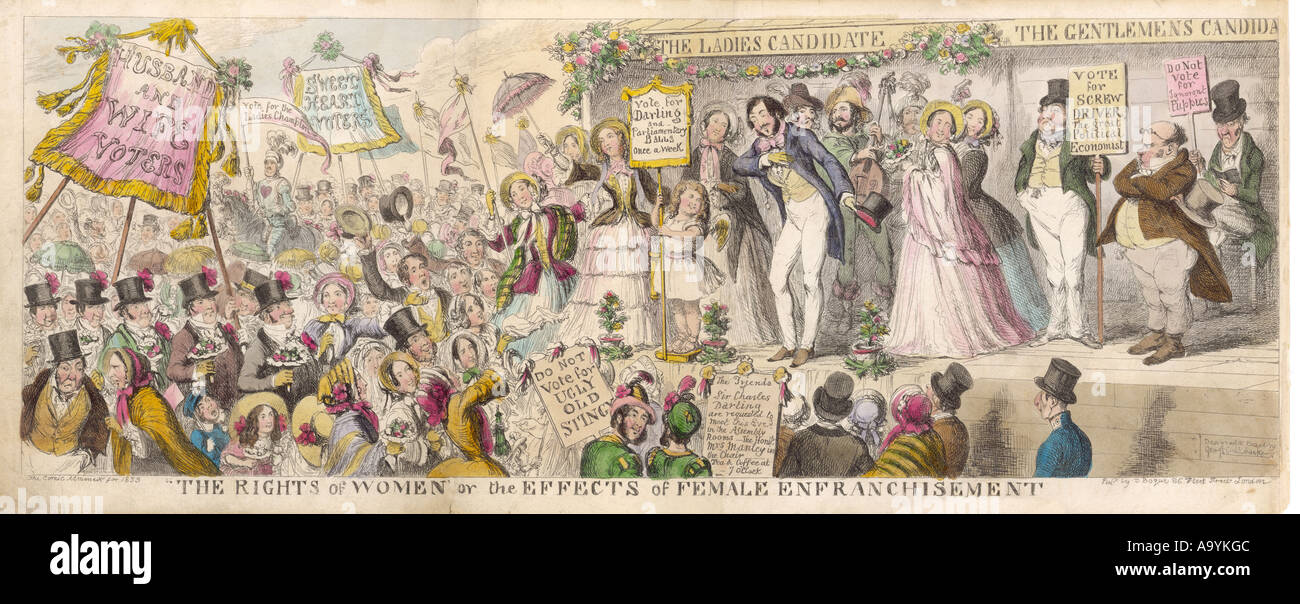 THE LADIES CANDIDATE
THE GENTLEMENS CANDIDA
HUSBAND
AND
WIFE
VOTERS
SWEET
HEART
VOTERS
Vote for the
Ladies Champion
Vote for
Darling
and
Parliamentary
Balls
Once a Week
VOTE
for
SCREW
DRIVER
the Great
Political
Economist
Do Not
Vote for
Ignorant
Puppies
DO NOT
Vote for
UGLY
OLD
STINGY
The Friends
of
Sir Charles
Darling
are requested to
meet this Eveng
in the Assembly
Rooms - The Honble
Mrs Manley in
the Chair
Tea & Coffee at
7 o'Clock
Designed & Etched by
George Cruikshank
The Comic Almanack for 1853
"THE RIGHTS of WOMEN" or the EFFECTS of FEMALE ENFRANCHISEMENT
Pubd by D Bogue 86 Fleet Street London
alamy
Image ID: A9YKGC
www.alamy.com